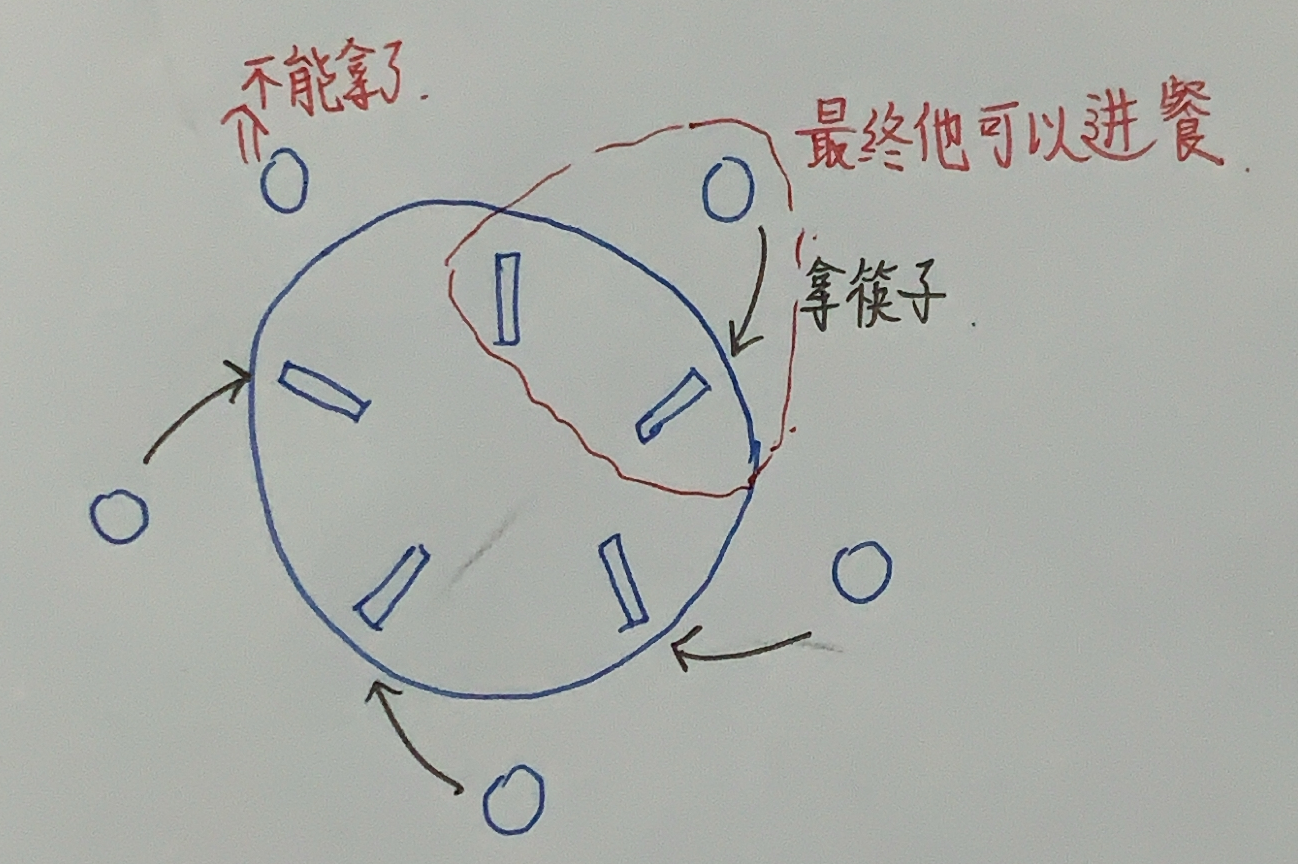 不能拿了.
最终他可以进餐.
拿筷子.